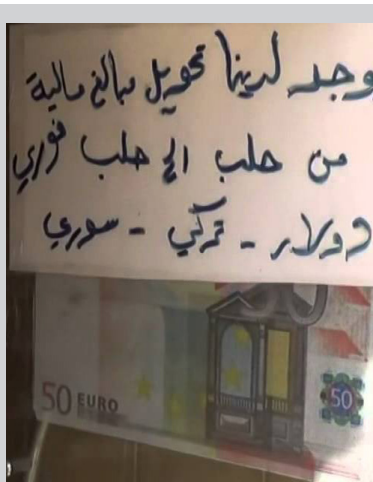 وجد لدينا تحويل مبالغ مالية
من حلب الى حلب فوري
دولار - تركي - سوري
50 EURO
50